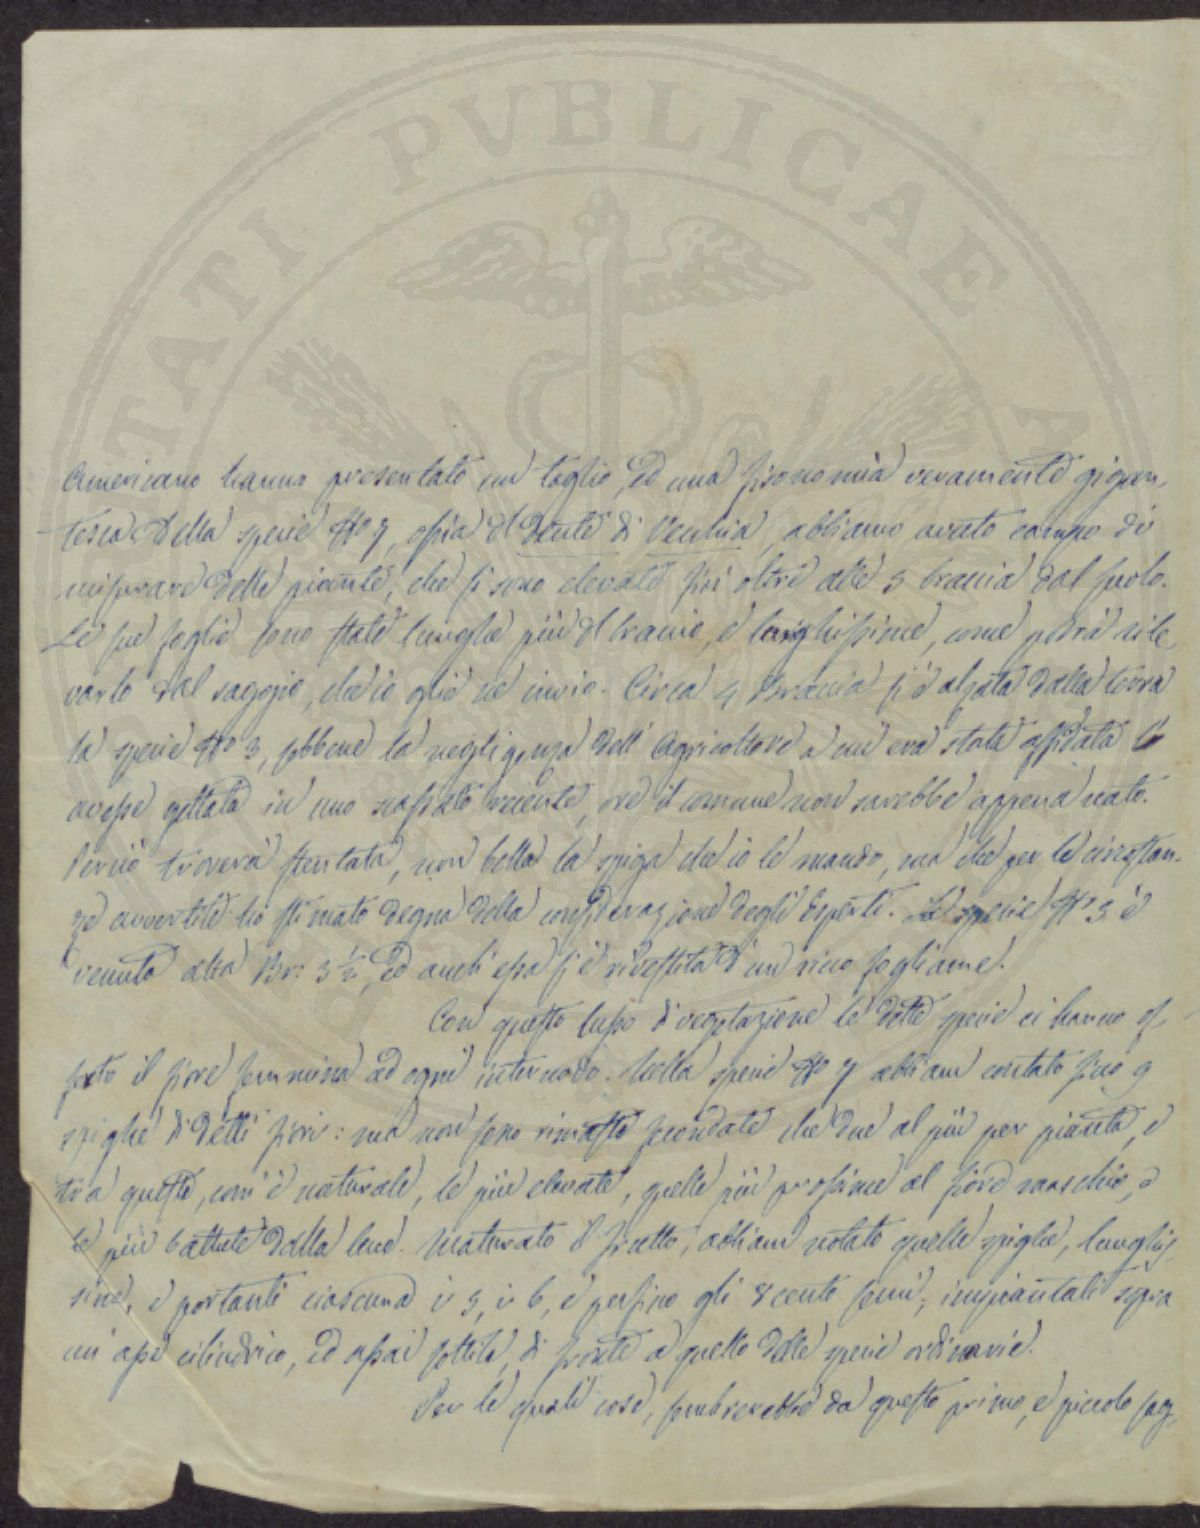 TATI PVBLICAE A
Americano hanno presentato un taglio, ed una fisonomia veramente gigan-
tesca. Della specie No 7, ossia il Dente di Vecchia, abbiamo avuto campo di
misurare delle piante, che si sono elevate fin oltre alle 5 braccia dal suolo.
Le sue foglie sono state lunghe più di braccio, e larghissime, come potrà rile-
varlo dal saggio, che io gliè ne invio. Circa 4 Braccia si è alzata dalla terra
la specie No 3, sebbene la negligenza dell' Agricoltore a cui era stata affidata l'
avesse gettata in uno scassato recente, ove il comune non sarebbe appena nato.
Perciò troverà stentata, non bella la spiga che io le mando, ma che per le circostan-
ze avvertite ho stimato degna della considerazione degli Esperti. La specie No 5 è
venuta alta Br: 3 ½, ed anch' essa si è rivestita d' un ricco fogliame.
Con questo lusso di vegetazione le dette specie ci hanno of-
ferto il fiore femmina ad ogni internodo. Nella specie No 7 abbiam contato fino 9
spighe di detti fiori: ma non sono rimaste fecondate che due al più per pianta, e
tra queste, com' è naturale, le più elevate, quelle più prossime al fiore maschio, e
le più battute dalla luce. Maturato il frutto, abbiam notato quelle spighe, lunghis-
sime, e portanti ciascuna i 5, i 6, e persino gli 8 cento semi, impiantati sopra
un asse cilindrico, ed assai sottile, di fronte a quello delle specie ordinarie.
Per le quali cose, sembrerebbe da questo primo, e piccolo sag-